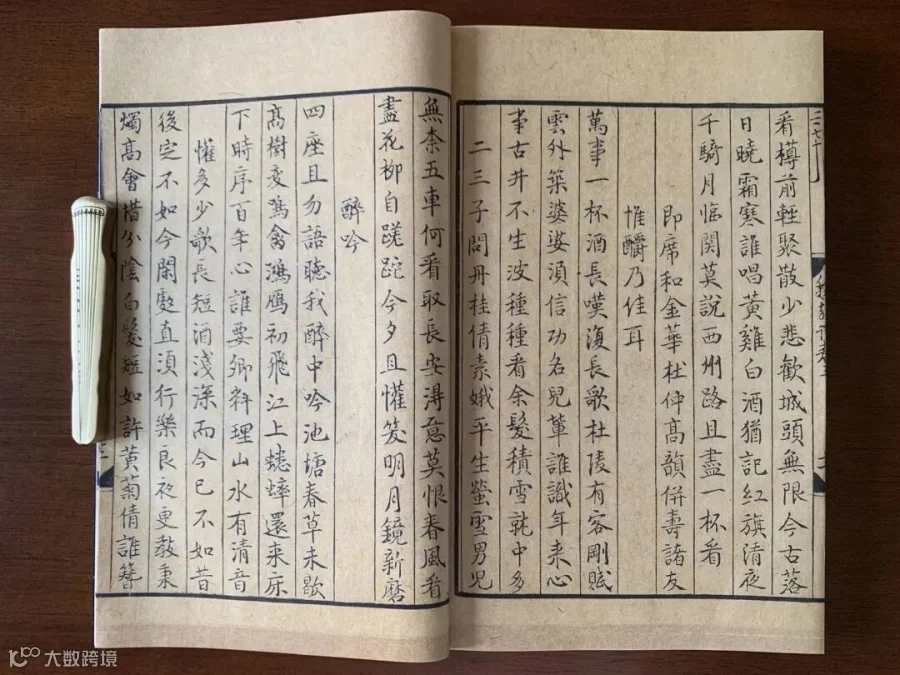 看樽前輕聚散少悲歡城頭無限今古落
日曉霜寒誰唱黃雞白酒猶記紅旗清夜
千騎月臨關莫說西州路且盡一杯看
即席和金華杜仲高韻併壽諸友
惟釂乃佳耳
萬事一杯酒長嘆復長歌杜陵有客剛賦
雲外築婆娑須信功名兒輩誰識年來心
事古井不生波種種看余髮積雪就中多
二三子問丹桂倩素娥平生螢雪男兒
無奈五車何看取長安得意莫恨春風看
盡花柳自蹉跎今夕且懽笑明月鏡新磨
醉吟
四座且勿語聽我醉中吟池塘春草未歇
高樹變鳴禽鴻鴈初飛江上蟋蟀還來床
下時序百年心誰要卿料理山水有清音
懽多少歌長短酒淺深而今已不如昔
後定不如今閑處直須行樂良夜更教秉
燭高會惜分陰白髮短如許黃菊倩誰簪
大数跨境